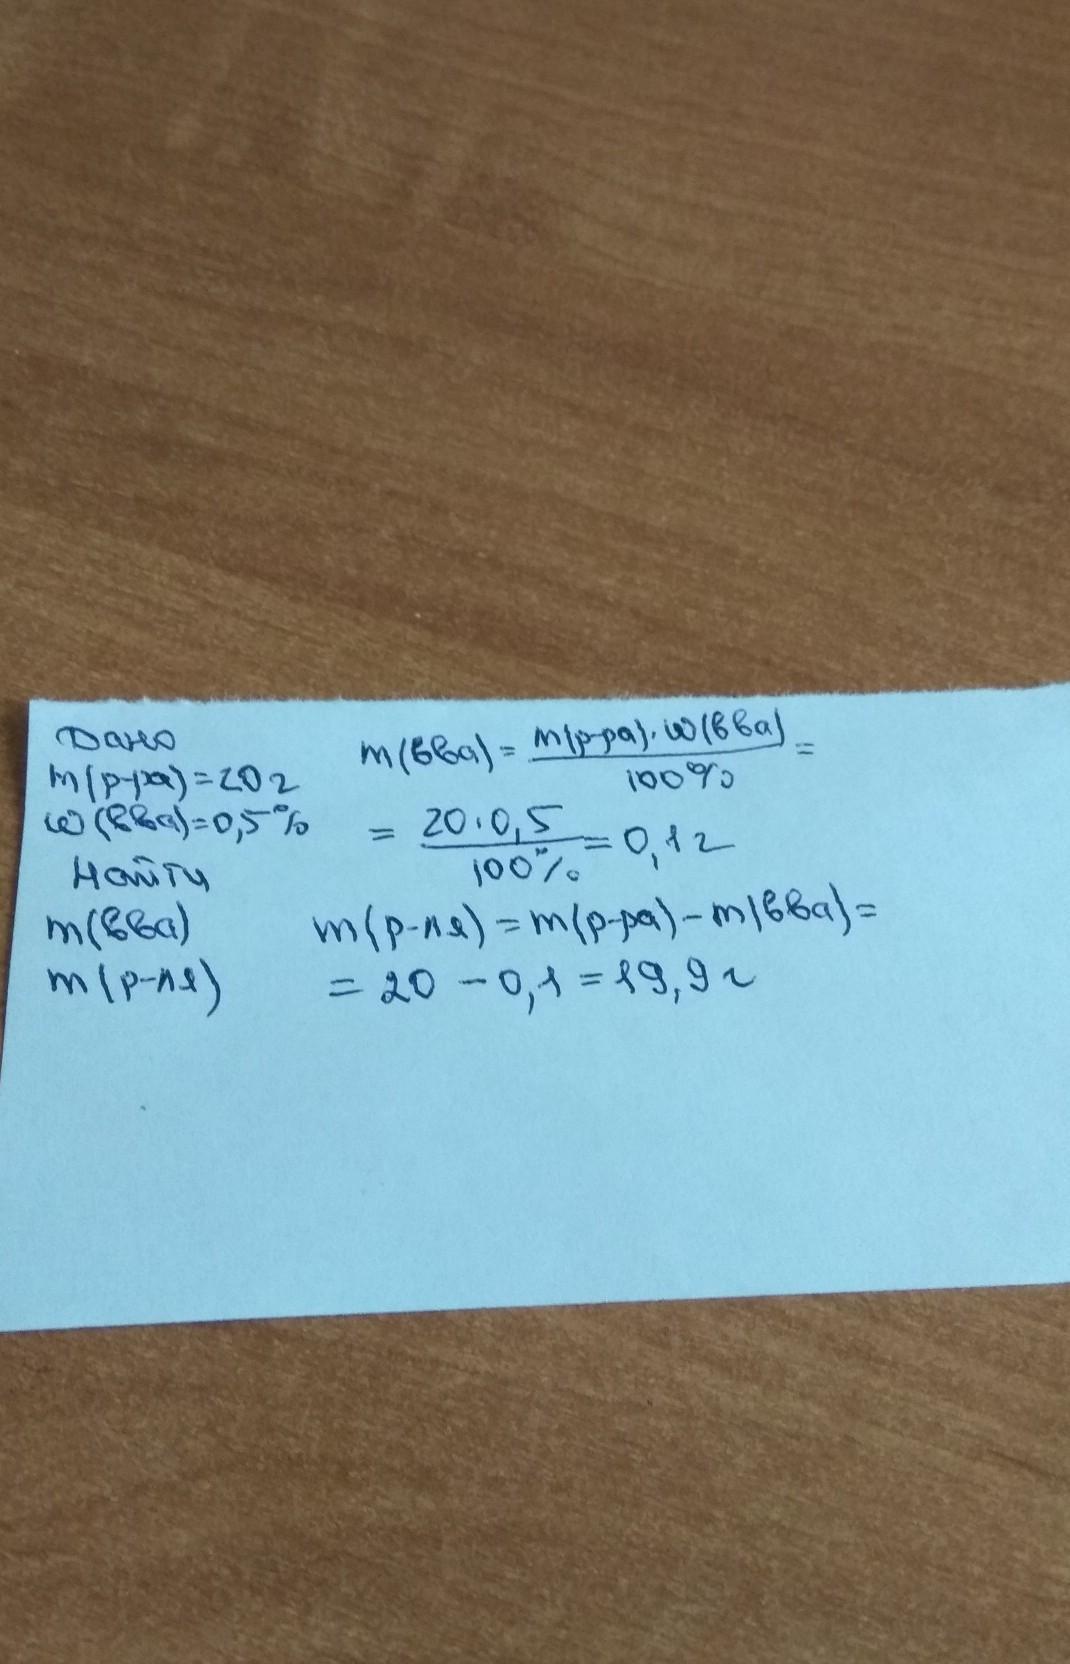 Дано
m(р-ра)=20г
ω(вва)=0,5%
Найти
m(вва)
m(р-ля)
m(вва) = m(р-ра)·ω(вва) =
100%
= 20·0,5 = 0,1г
100%
m(р-ля) = m(р-ра) – m(вва) =
= 20 – 0,1 = 19,9г